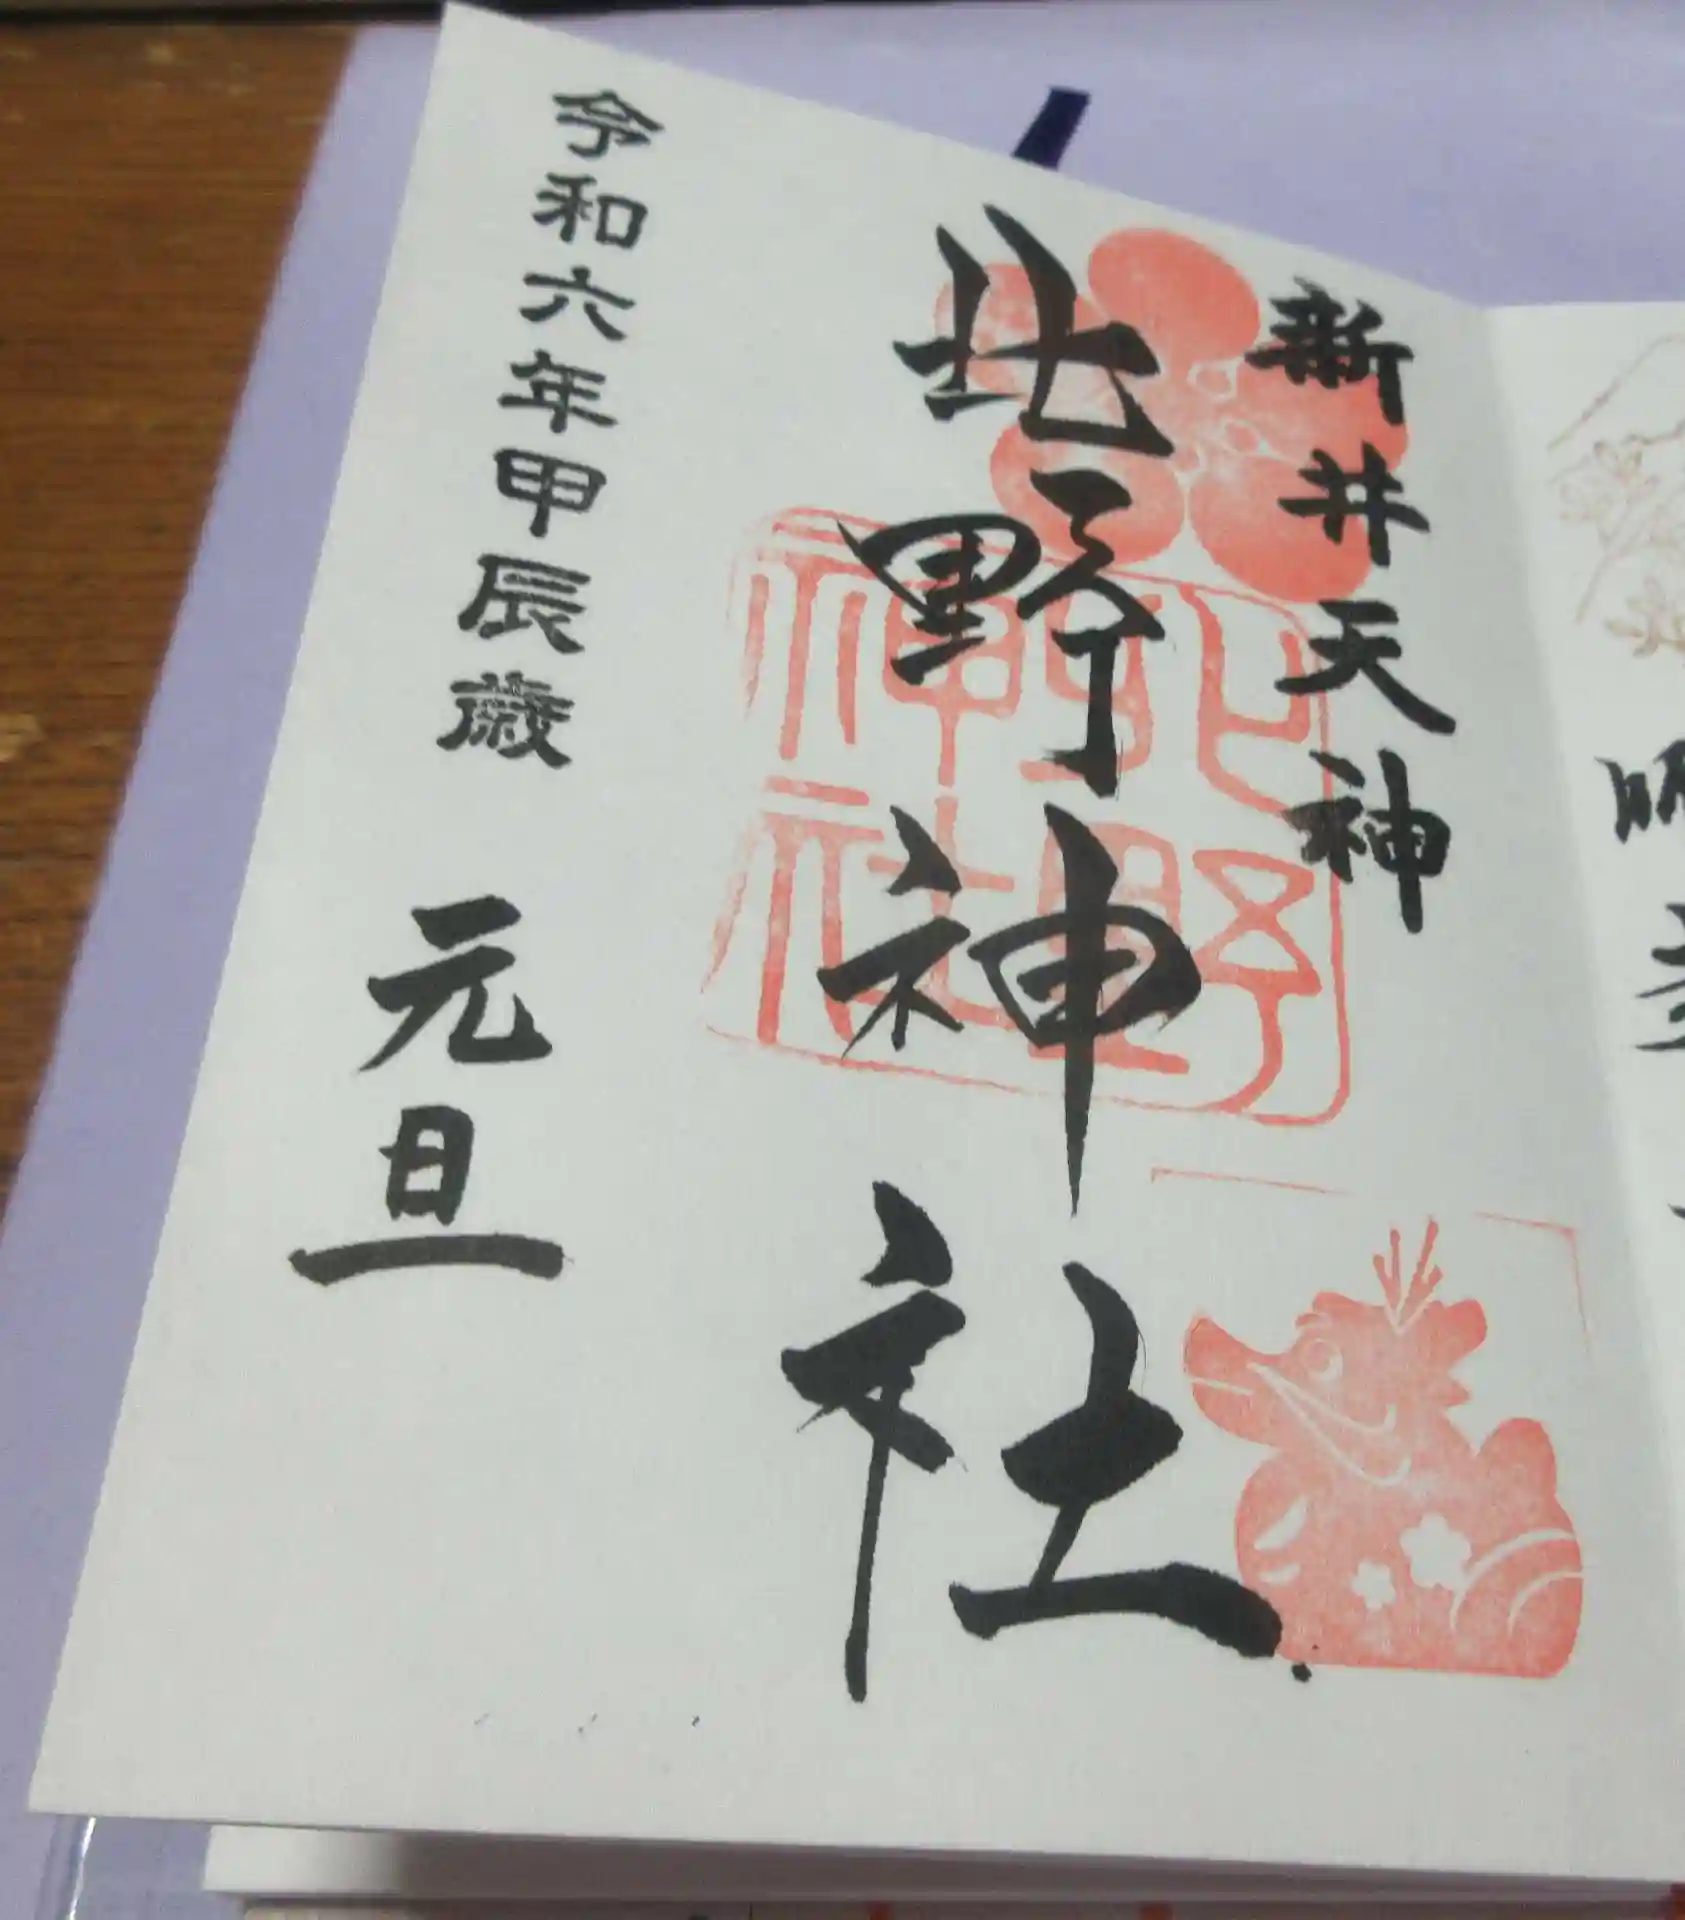 新井天神
北野神社
北野神社
令和六年甲辰歳 元旦